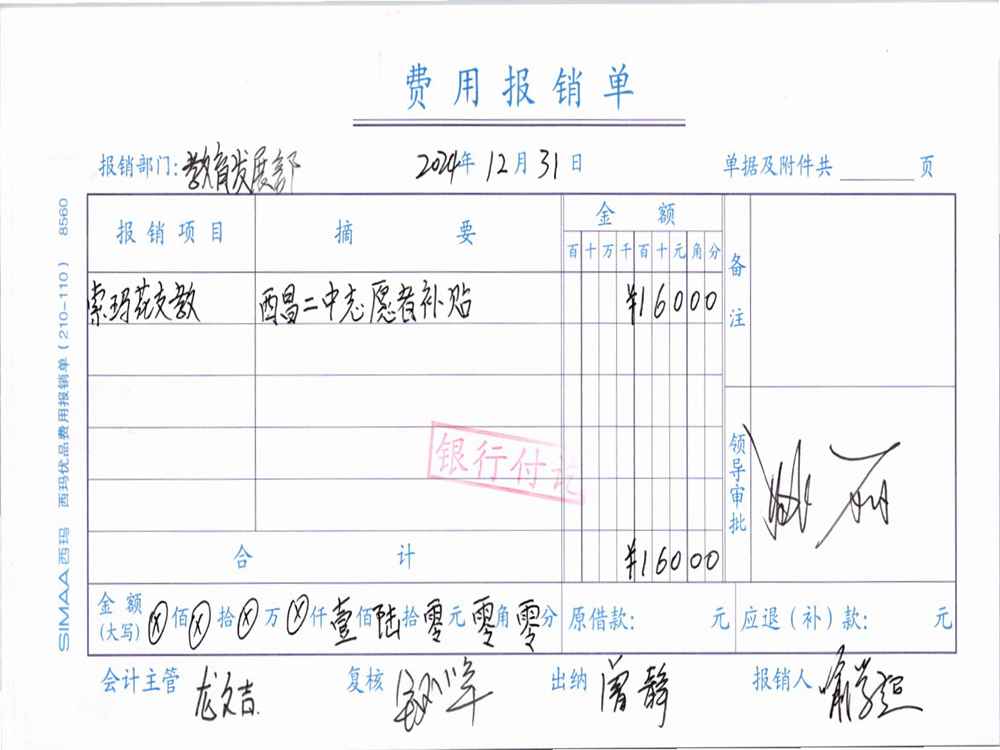 费用报销单
报销部门: 教育发展部 2024年 12月 31日 单据及附件共 页
报销项目 摘要 金额 备注
百 十 万 千 百 十 元 角 分
索玛花支教 西昌二中志愿者补贴 ¥16000
银行付讫
领导审批
合计 ¥16000
金额(大写) ⊗佰⊗拾⊗万⊗仟壹佰陆拾零元零角零分 原借款: 元 应退(补)款: 元
会计主管 龙文吉 复核 出纳 曾静 报销人
SIMAA西玛 西玛优品费用报销单(210-110) 8560